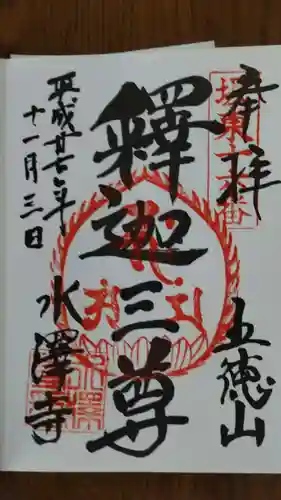 奉拝
坂東十六番
五徳山
釋迦三尊
平成廿七年
十一月三日
水澤寺